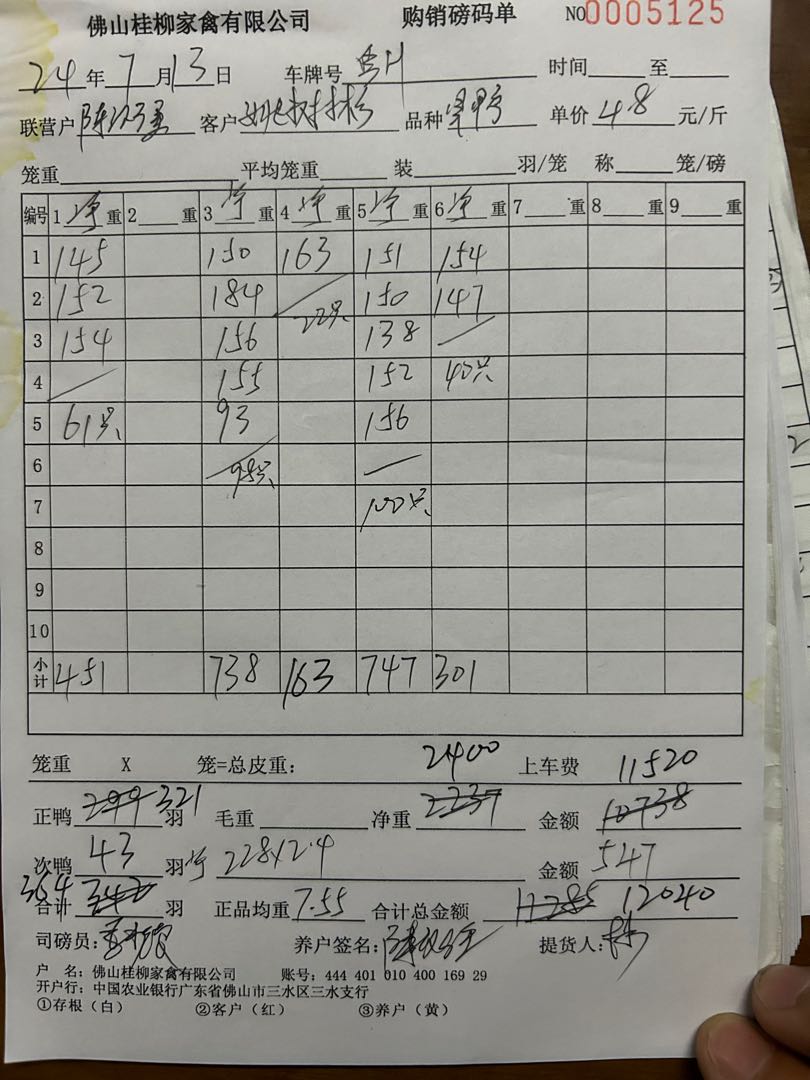 佛山桂柳家禽有限公司 购销磅码单 NO0005125
24年7月13日 车牌号 时间 至
联营户 客户 姚树彬 品种 单价 4.8 元/斤
笼重 平均笼重 装 羽/笼 称 笼/磅
编号 1 净 重 2 重 3 净 重 4 净 重 5 净 重 6 净 重 7 重 8 重 9 重
1 145 150 163 151 154
2 152 184 150 147
3 154 156 22只 138
4 155 152 40只
5 61只 93 156
6 98只
7 100只
8
9
10
小计 451 738 163 747 301
笼重 X 笼=总皮重: 2400 上车费 11520
正鸭 299 321 羽 毛重 净重 2237 金额 10738
次鸭 43 羽 净 228×2.4 金额 547
364
合计 342 羽 正品均重 7.55 合计总金额 11285 12040
司磅员: 养户签名: 提货人:
户 名: 佛山桂柳家禽有限公司 账号: 444 401 010 400 169 29
开户行: 中国农业银行广东省佛山市三水区三水支行
①存根(白) ②客户(红) ③养户(黄)